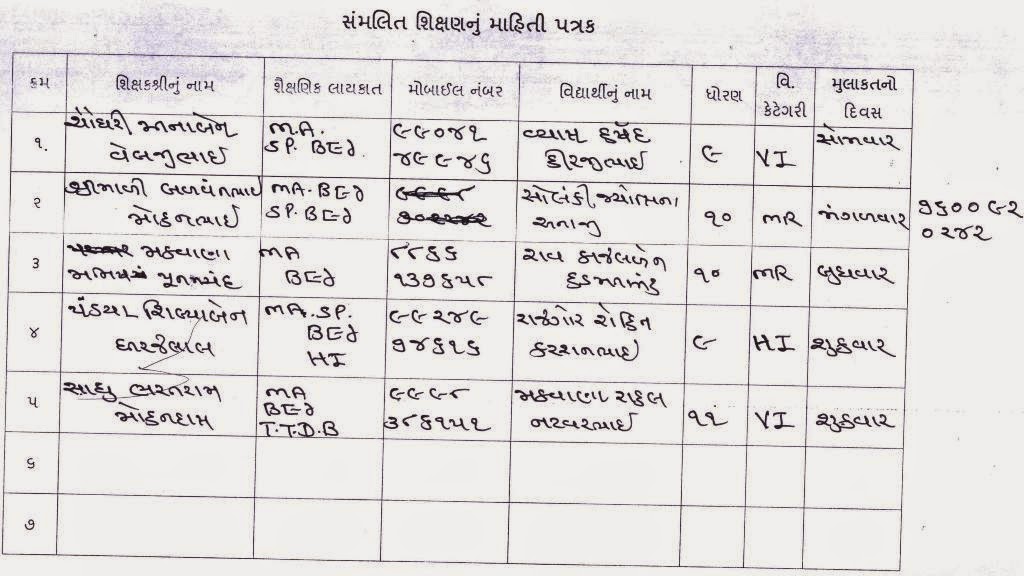 સંમલિત શિક્ષણનું માહિતી પત્રક
ક્રમ શિક્ષકશ્રીનું નામ શૈક્ષણિક લાયકાત મોબાઈલ નંબર વિદ્યાર્થીનું નામ ધોરણ વિ. કેટેગરી મુલાકતનો દિવસ
૧. ચૌધરી માનાબેન M.A. ૯૯૦૪૧ વ્યાસ હર્ષદ ૯ VI સોમવાર
વેલજીભાઈ SP. BEd. ૪૯૯૪૬ હીરજીભાઈ
૨ શ્રીમાળી બળવંતભાઈ MA. BEd સોલંકી જ્યોત્સના ૧૦ MR મંગળવાર ૭૬૦૦૯૨
મોહનભાઈ SP. BEd ૦૨૪૨
૩ મકવાણા MA ૮૮૬૬ રાવ કાજલબેન ૧૦ MR બુધવાર
BEd ૧૩૭૬૫૮
૪ પંડયા શિલ્પાબેન MA. SP. ૯૯૨૪૯ રાજગોર રોહિત ૯ HI શુક્રવાર
BEd ૧૪૬૧૬ કરશનભાઈ
HI
૫ સાધુ ભરતરામ MA ૯૯૯૮ મકવાણા રાહુલ ૧૧ VI શુક્રવાર
મોહનદામ BEd ૩૮૬૧૫૧ નરવરભાઈ
T.T.D.B
૬
૭